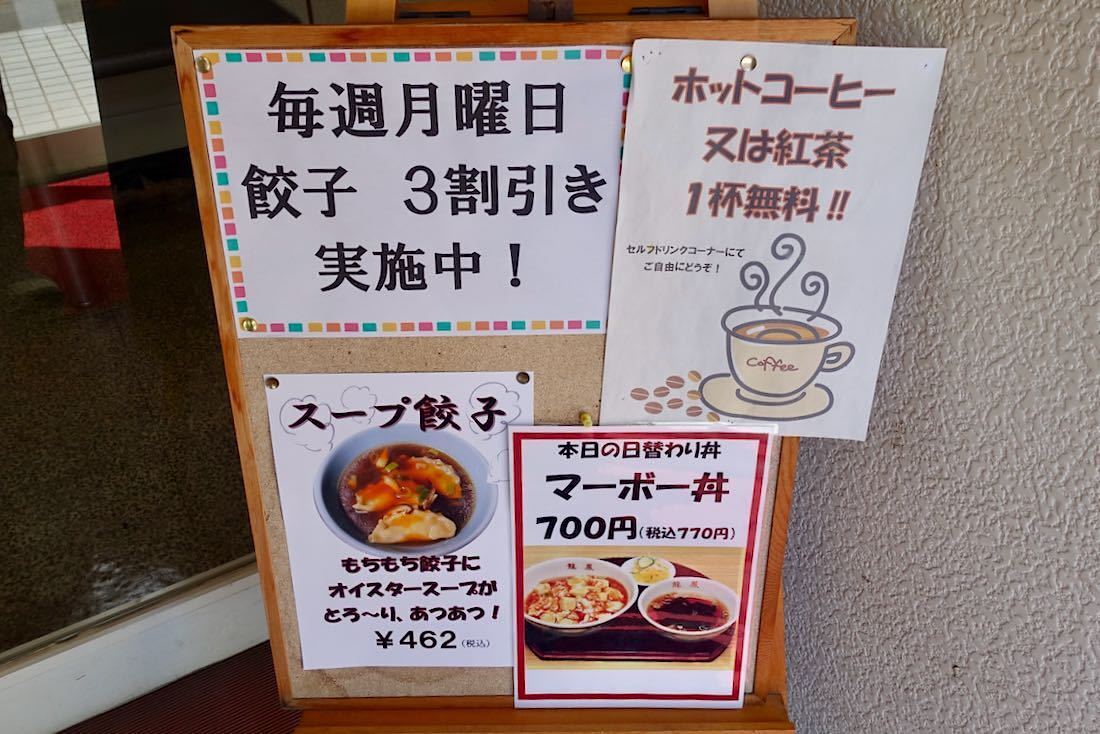 毎週月曜日
餃子 3割引き
実施中！
ホットコーヒー
又は紅茶
1杯無料!!
セルフドリンクコーナーにて
ご自由にどうぞ！
Coffee
スープ餃子
もちもち餃子に
オイスタースープが
とろ〜り、あつあつ！
￥462(税込)
本日の日替わり丼
マーボー丼
700円(税込770円)
龍鳳
龍鳳